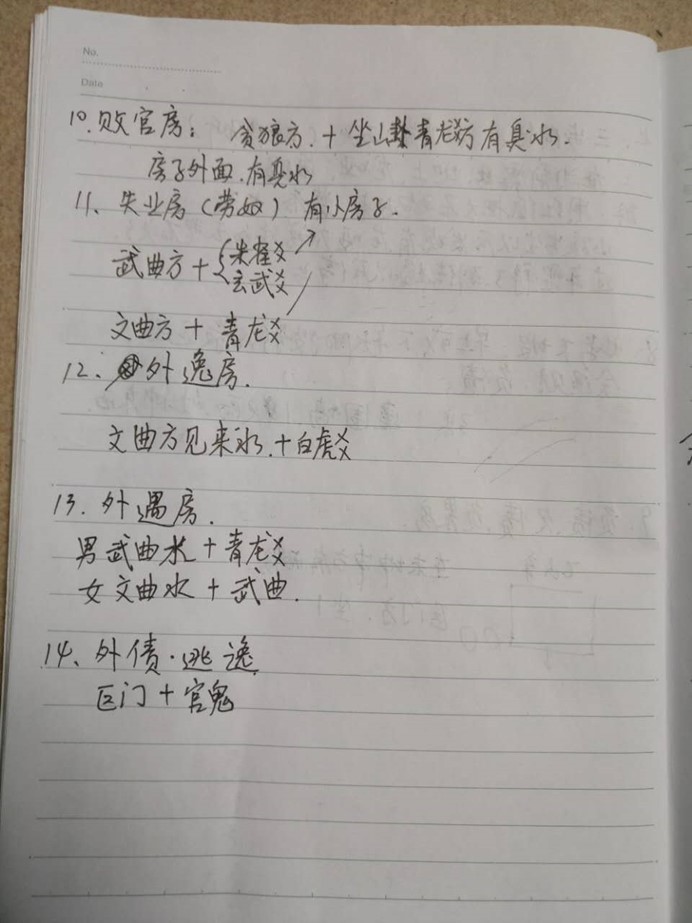 No.
Date
10. 败官房： 贪狼方. + 坐山卦青龙爻方有臭水.
房子外面.有臭水
11、失业房（劳奴） 有小房子.
武曲方 + { 朱雀爻
玄武爻
文曲方 + 青龙爻
12、外逸房.
文曲方见来水.+白虎爻
13. 外遇房.
男武曲水 + 青龙爻
女文曲水 + 武曲.
14. 外债.逃逸
巨门 + 官鬼